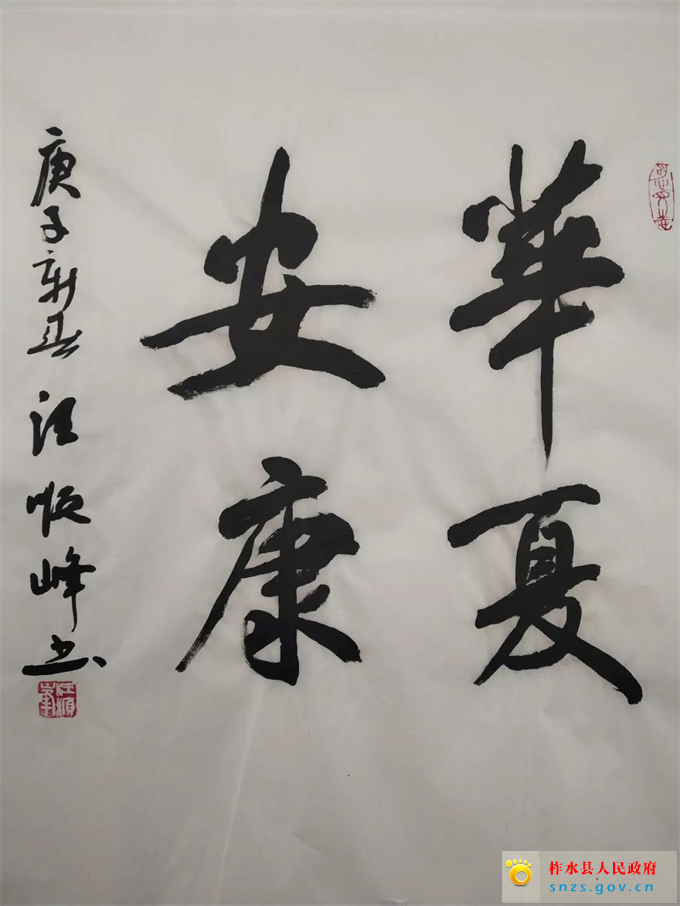 華夏
安康
庚子新春 汪順峰书
柞水县人民政府
snzs.gov.cn